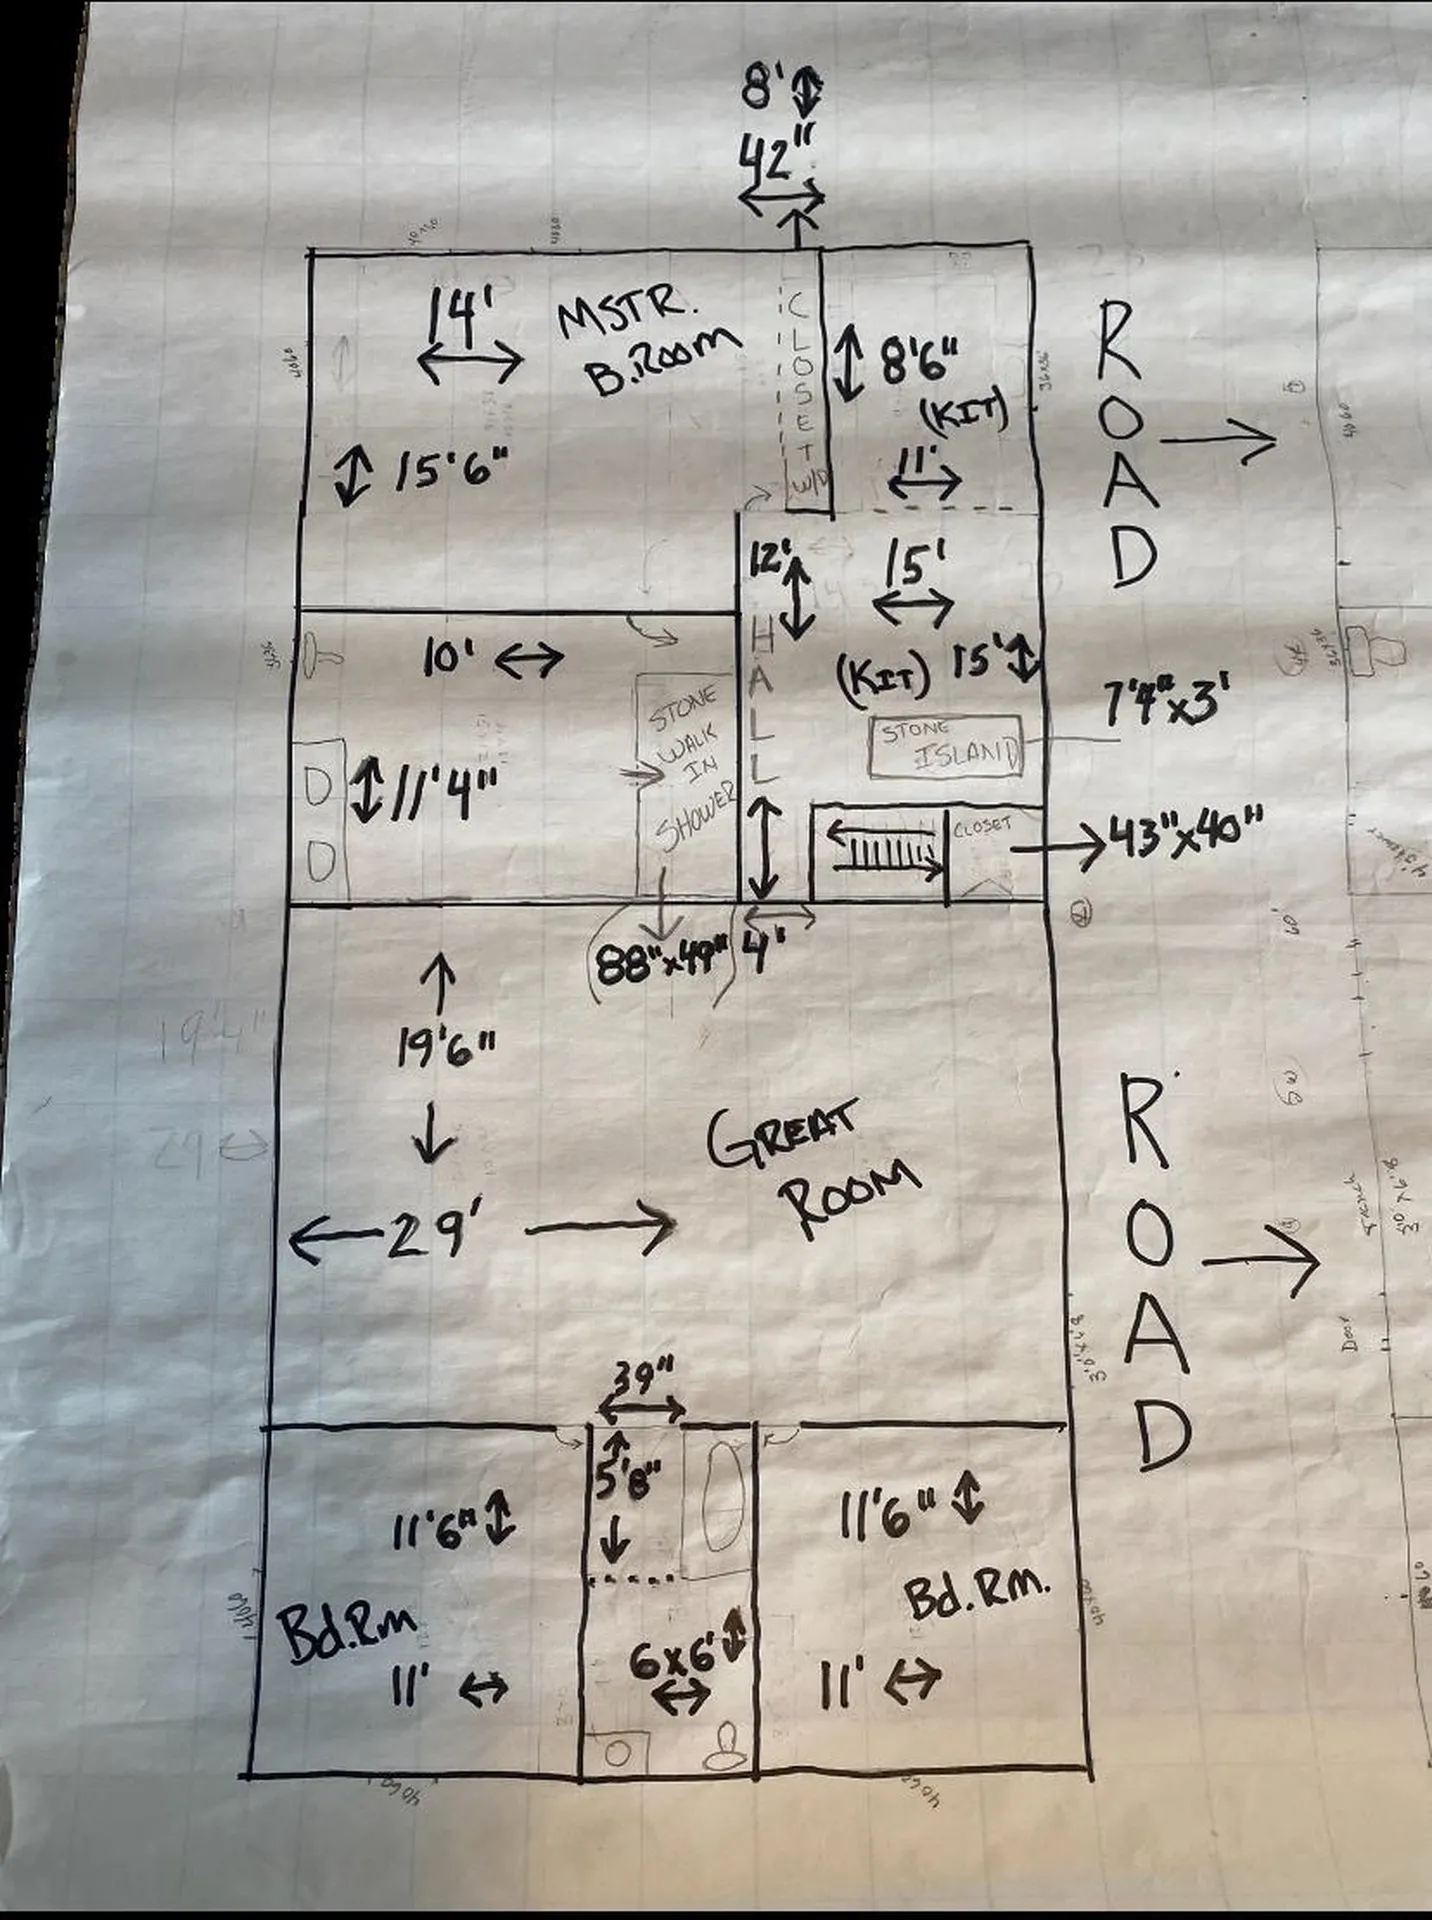 8'
42"
14'
MSTR.
B.ROOM
CLOSET
W/D
8'6"
(KIT)
11'
15'6"
12'
15'
(KIT) 15'
HALL
10'
STONE
WALK
IN
SHOWER
11'4"
STONE
ISLAND
7'4"x3'
CLOSET
43"x40"
88"x49"
4'
ROAD
19'6"
19'4"
29
29'
GREAT
ROOM
ROAD
39"
5'8"
11'6"
Bd.Rm
11'
6x6'
11'6"
Bd.Rm.
11'
4060
4060
4060
4060
4060
Door